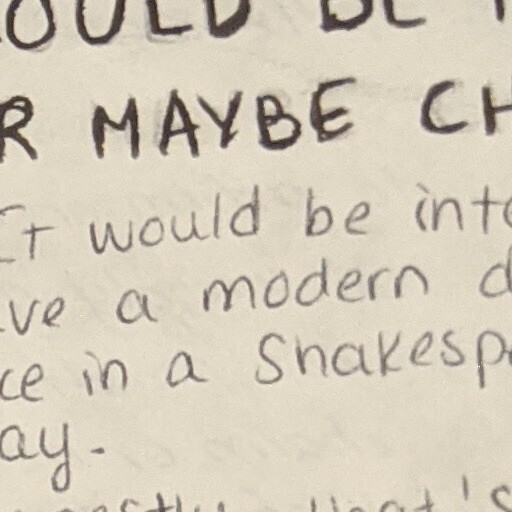 OULD BE
R MAYBE CH
It would be inte
ve a modern d
ce in a Snakespe
ay.
that's